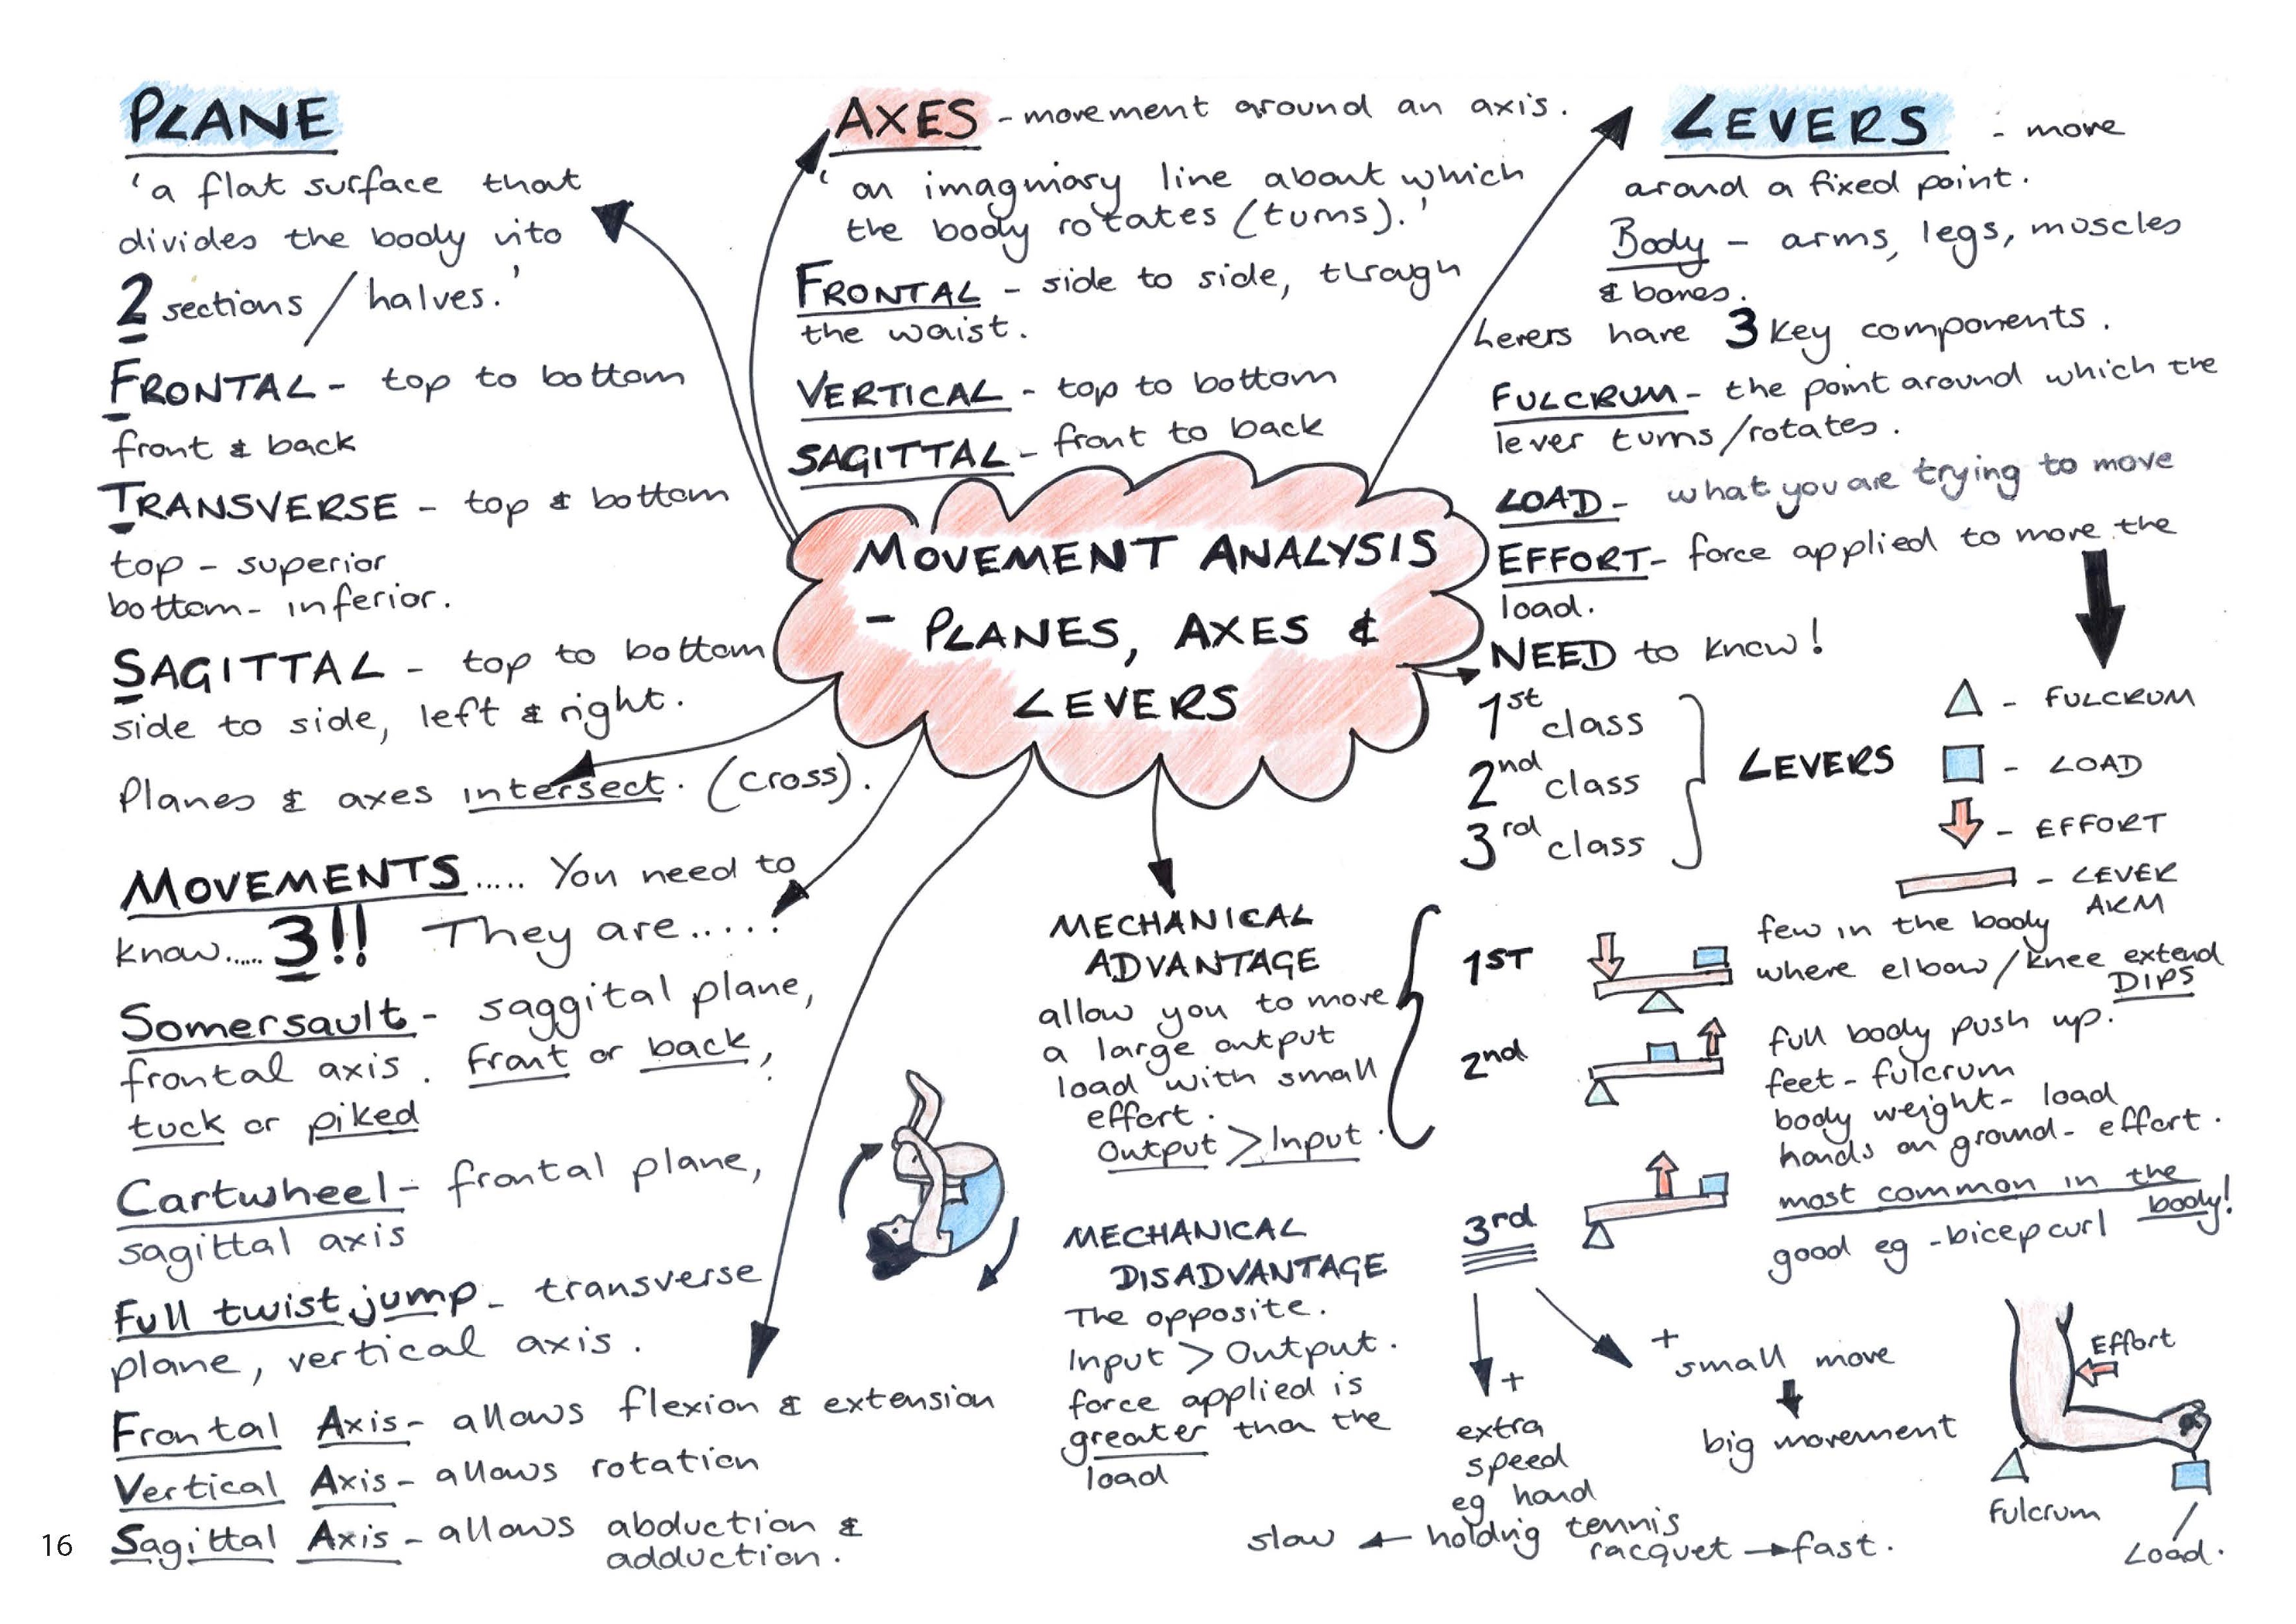 PLANE
'a flat surface that
divides the body into
2 sections / halves.'
FRONTAL - top to bottom
front & back
TRANSVERSE - top & bottom
top - superior
bottom - inferior.
SAGITTAL - top to bottom
side to side, left & right.
Planes & axes intersect. (cross).
AXES - movement around an axis.
'an imaginary line about which
the body rotates (turns).'
FRONTAL - side to side, through
the waist.
VERTICAL - top to bottom
SAGITTAL - front to back
LEVERS - move
around a fixed point.
Body - arms, legs, muscles
& bones.
Levers have 3 key components.
FULCRUM - the point around which the
lever turns/rotates.
LOAD - what you are trying to move
EFFORT - force applied to move the
load.
MOVEMENT ANALYSIS
- PLANES, AXES &
LEVERS
NEED to know!
1st class
2nd class
3rd class
LEVERS
- FULCRUM
- LOAD
- EFFORT
- LEVER
ARM
MOVEMENTS..... You need to
know..... 3!! They are.....
Somersault - saggital plane,
frontal axis. Front or back,
tuck or piked
Cartwheel - frontal plane,
sagittal axis
Full twist jump - transverse
plane, vertical axis.
Frontal Axis - allows flexion & extension
Vertical Axis - allows rotation
Sagittal Axis - allows abduction &
adduction.
MECHANICAL
ADVANTAGE
allow you to move
a large output
load with small
effort.
Output > Input.
1ST
few in the body
where elbow/knee extend
DIPS
2nd
full body push up.
feet - fulcrum
body weight - load
hands on ground - effort.
MECHANICAL
DISADVANTAGE
The opposite.
Input > Output.
force applied is
greater than the
load
3rd
most common in the
body!
good eg - bicep curl
+
extra
speed
eg hand
slow ← holding tennis
racquet → fast.
+
small move
big movement
Effort
fulcrum
Load.
16